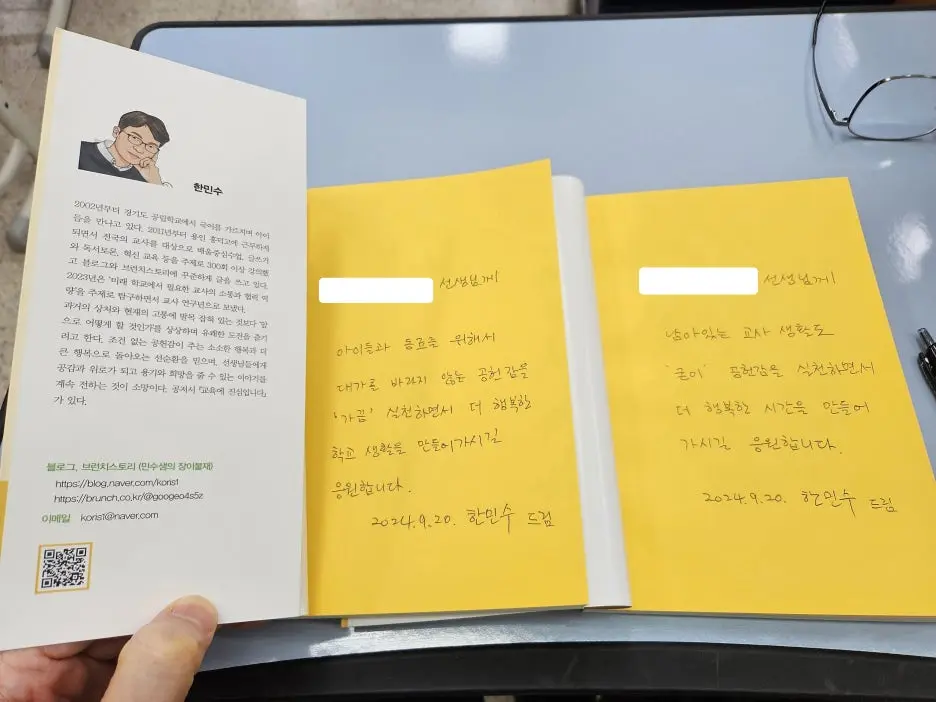 한민수
2002년부터 경기도 공립학교에서 국어를 가르치며 아이
들을 만나고 있다. 2011년부터 용인 흥덕고에 근무하게
되면서 전국의 교사를 대상으로 배움중심수업, 글쓰기
와 독서토론, 혁신 교육 등을 주제로 300회 이상 강의했
고 블로그와 브런치스토리에 꾸준하게 글을 쓰고 있다.
2023년은 '미래 학교에서 필요한 교사의 소통과 협력 역
량'을 주제로 탐구하면서 교사 연구년으로 보냈다.
과거의 상처와 현재의 고통에 발목 잡혀 있는 것보다 '앞
으로 어떻게 할 것인가'를 상상하며 유쾌한 도전을 즐기
려고 한다. 조건 없는 공헌감이 주는 소소한 행복과 더
큰 행복으로 돌아오는 선순환을 믿으며, 선생님들에게
공감과 위로가 되고 용기와 희망을 줄 수 있는 이야기를
계속 전하는 것이 소망이다. 공저서 『교육에 진심입니다』
가 있다.
블로그, 브런치스토리 (민수샘의 장이불재)
https://blog.naver.com/koris1
https://brunch.co.kr/@googeo4s5z
이메일 koris1@naver.com
선생님께
아이들과 동료를 위해서
대가를 바라지 않는 공헌감을
'가끔' 실천하면서 더 행복한
학교 생활을 만들어가시길
응원합니다.
2024.9.20. 한민수 드림
선생님께
남아있는 교사 생활도
'굳이' 공헌감을 실천하면서
더 행복한 시간을 만들어
가시길 응원합니다.
2024.9.20. 한민수 드림